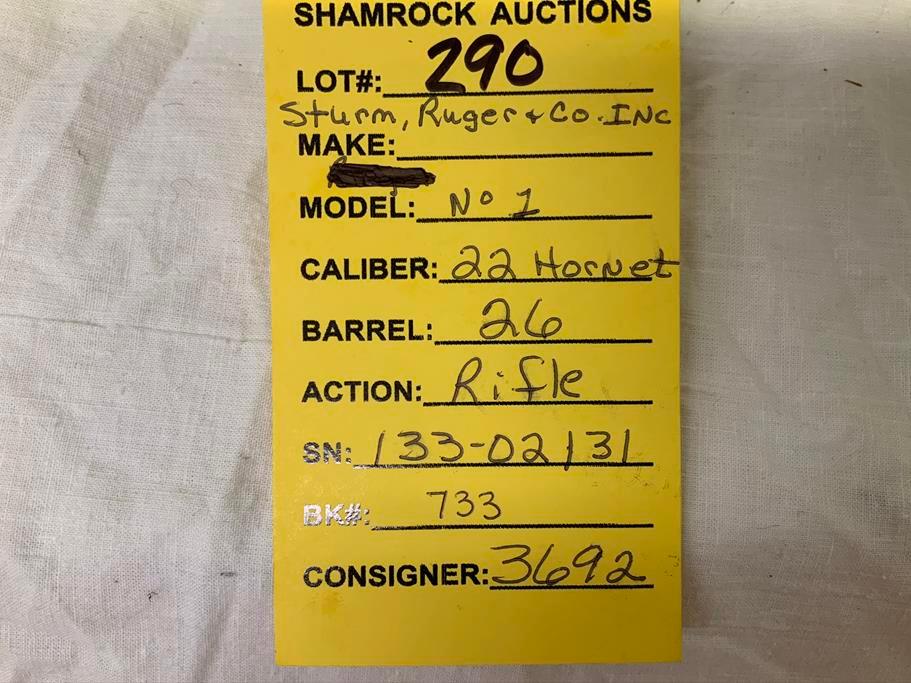 SHAMROCK AUCTIONS
LOT#: 290
Sturm, Ruger & Co. INc
MAKE:
MODEL: No 1
CALIBER: 22 Hornet
BARREL: 26
ACTION: Rifle
SN: 133-02131
BK#: 733
CONSIGNER: 3692